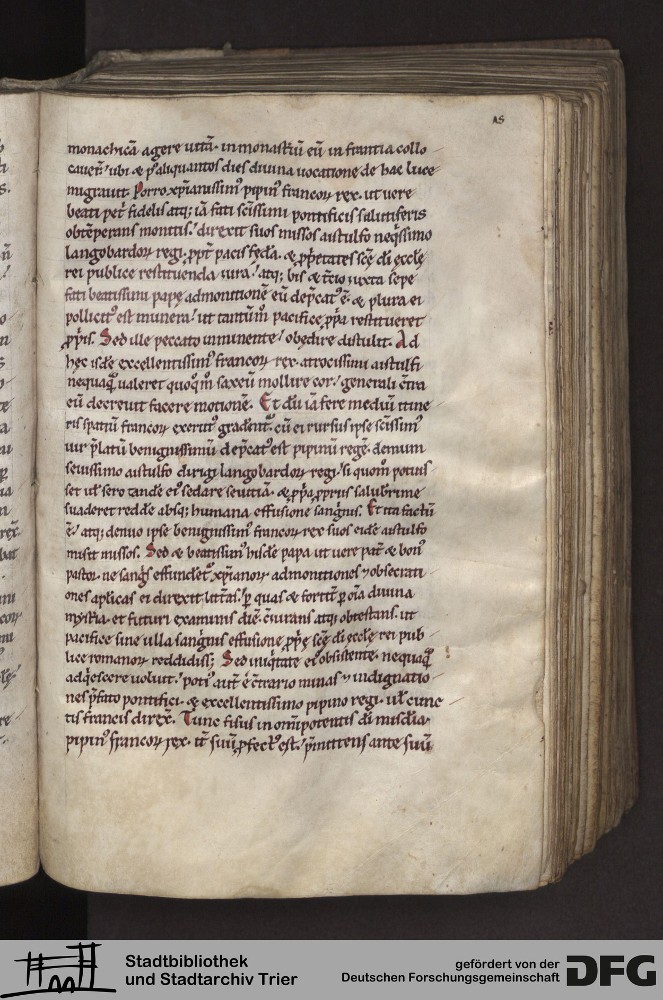 AS
monachicā agere vitā. in monastūi eū in frantia collo
caver̄. ubi & p̱ aliquantos dies divina vocatione de hac luce
migravit. Porro xp̄ianissim᾽ pipin᾽ francoꝝ rex. ut vere
beati pet᷒ fidelis atq; iā fati sc̄issimi pontificis salutiferis
obtēperans monitis. direxit suos missos aistulfo neq̇ssimo
langobardoꝝ regi. ꝓpt̄ pacis fęda. & ꝓp̄etates sc̄ę dī ęcclę
rei publice restituenda iura. atq; bis & t̄cio iuxta sepe
fati beatissimi papę admonitionē eū dep̄cat᾽ ē. & plura ei
pollicit᾽ est munera. ut tantūm̄ pacifice ꝓp̄a restitueret
ꝓp̄iis. Sed ille peccato imminente. obędire distulit. Ad
hęc isdē excellentissim᾽ francoꝝ rex. atrocissimi aistulfi
nequaꝗ valeret quoq̊m saxeū mollire cor. generali ct̄ra
eū decrevit facere motionē. Et dū iā fere mediū itine
ris spatiū francoꝝ exercit᾽ gradirēt᷑. cū ei rursus ipse sc̄issim᾽
vir p̄latū benignissimū dep̄cat᾽ est pipinū regē. demum
sevissimo aistulfo dirigi langobardoꝝ regi. si quom̊ potuis
set ul᷑ sero tandē ei᾽ sedare sevitiā. & ꝓp̄a ꝓpriis salubrime
suaderet reddē absq; humana effusione sanguis. Et ita factū
ē. atq; denuo ipse benignissim᾽ francoꝝ rex suos eidē aistulfo
misit missos. Sed & beatissim᾽ hisdē papa ut vere pat᷒ & bon᾽
pastor. ne sangi̇s effunderet᷑ xp̄ianoꝝ admonitiones ⁊ obsecrati
ones aplicas ei direxit litt̄as. ꝑ quas & fortit᷒ ꝑ oīa divina
mystīa. et futuri examinis diē. c̄iurans atq; obtestans. ut
pacifice sine ulla sanginis effusione ꝓp̄ę sc̄ę dī ęcclę rei pub
lice romanoꝝ reddidiss&. Sed iniq̇tate ei᾽ obsistente. nequaꝗ
adq̇escere voluit. poti᾽ aut̄ ē ct̄rario minas ⁊ indignatio
nes p̄fato pontifici. & excellentissimo pipino regi. ul᷑ cunc
tis francis direx̄. Tunc fisus in omīpotentis dī mis̄dia.
pipin᾽ francoꝝ rex. it̄ suū ꝓfect᾽ est. p̄mittens ante suū
Stadtbibliothek
und Stadtarchiv Trier
gefördert von der
Deutschen Forschungsgemeinschaft
DFG